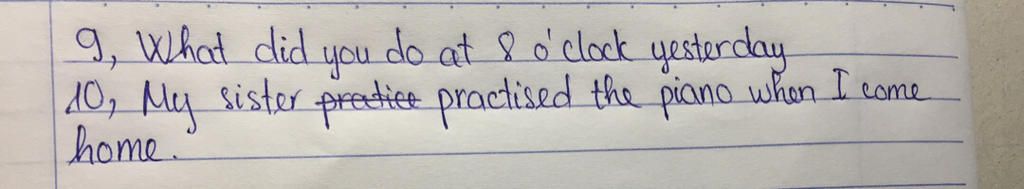 9, What did you do at 8 o'clock yesterday
10, My sister practice practised the piano when I come
home.